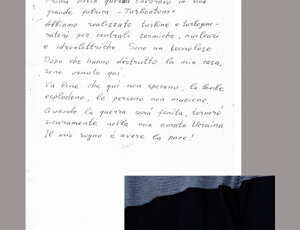 Prima della guerra lavoravo in una
grande fabrica - "Turboatom"
Abbiamo realizzato turbine e turbogene-
ratori per centrali termiche, nucleari
e idroelettriche. Sono un tecnologo
Dopo che hanno distrutto la mia casa,
sono venuto qui.
Va bene che qui non sparano, le bombe
esplodono, le persone non muoiono.
Quando la guerra sarà finita, tornerò
sicuramente nella mia amata Ucraina
Il mio sogno è avere la pace!